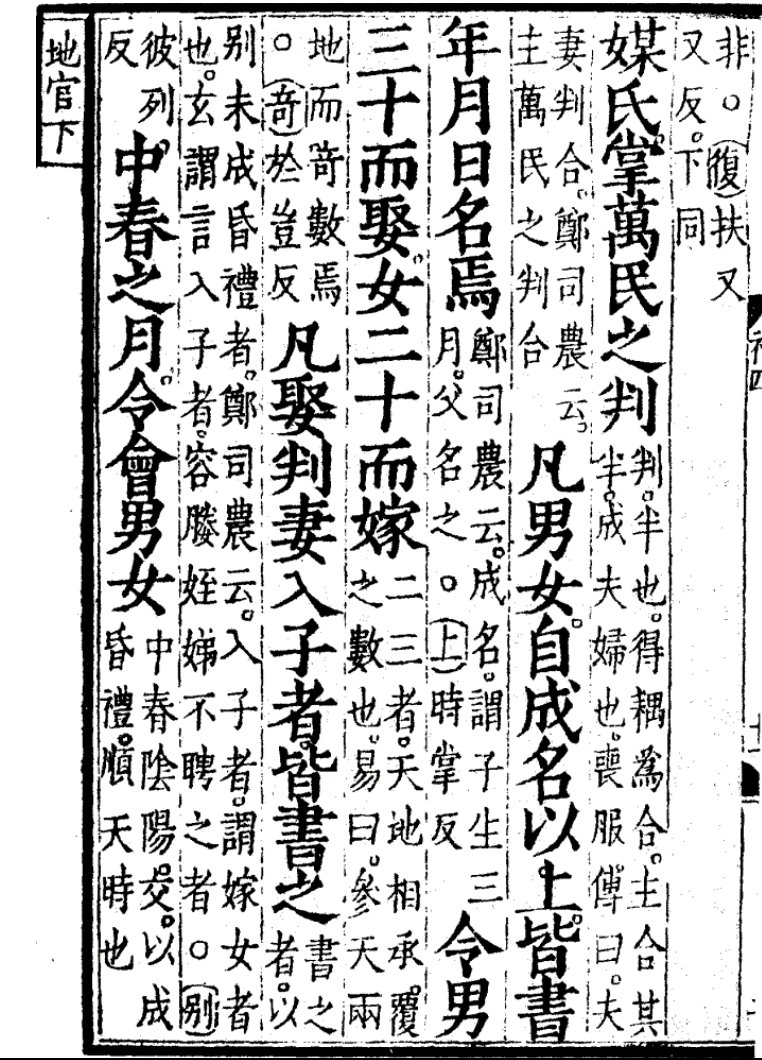 非○(復)扶又
又反。下同
媒氏。掌萬民之判
判。半也。得耦為合。主合其
半。成夫婦也。喪服傳曰。夫
妻判合。鄭司農云。
主萬民之判合
凡男女。自成名以上。皆書
年月日名焉
鄭司農云。成名。謂子生三
月。父名之○(上)時掌反
令男
三十而娶。女二十而嫁
二三者。天地相承覆
之數也。易曰。參天兩
地而竒數焉
○(竒)於豈反
凡娶判妻入子者。皆書之
書之
者。以
别未成昏禮者。鄭司農云。入子者。謂嫁女者
也。玄謂言入子者。容媵姪娣不聘之者○(别)
彼列。
反
中春之月。令會男女
中春陰陽。交。以成
昏禮。順天時也
地官下